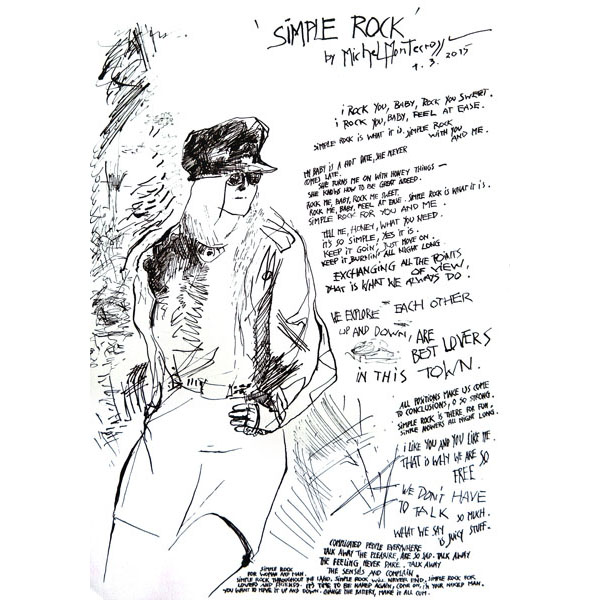 'SIMPLE ROCK'
by Michel Montecrossa
1.3.2015
I ROCK YOU, BABY, ROCK YOU SWEET.
I ROCK YOU, BABY, FEEL AT EASE.
SIMPLE ROCK IS WHAT IT IS. SIMPLE ROCK
WITH YOU
AND ME.
MY BABY IS A HOT DATE, SHE NEVER
COMES LATE.
SHE TURNS ME ON WITH HONEY THINGS —
SHE KNOWS HOW TO BE GREAT INDEED.
ROCK ME, BABY, ROCK ME SWEET.
ROCK ME, BABY, FEEL AT EASE. SIMPLE ROCK IS WHAT IT IS.
SIMPLE ROCK FOR YOU AND ME.
TELL ME, HONEY, WHAT YOU NEED.
IT'S SO SIMPLE, YES IT IS.
KEEP IT GOIN', JUST MOVE ON.
KEEP IT BURNIN' ALL NIGHT LONG.
EXCHANGING ALL THE POINTS
OF VIEW,
THAT IS WHAT WE ALWAYS DO.
WE EXPLORE EACH OTHER
UP AND DOWN, ARE
BEST LOVERS
IN THIS TOWN.
ALL POSITIONS MAKE US COME
TO CONCLUSIONS, O SO STRONG.
SIMPLE ROCK IS THERE FOR FUN.
SIMPLE ANSWERS ALL NIGHT LONG.
I LIKE YOU AND YOU LIKE ME.
THAT IS WHY WE ARE SO
FREE.
WE DON'T HAVE
TO TALK SO MUCH.
WHAT WE SAY
IS JUICY STUFF.
COMPLICATED PEOPLE EVERYWHERE
TALK AWAY THE PLEASURE, ARE SO SAD. TALK AWAY
THE FEELING, NEVER DARE. TALK AWAY
THE SENSES AND COMPLAIN.
SIMPLE ROCK
FOR WOMAN AND MAN.
SIMPLE ROCK THROUGHOUT THE LAND. SIMPLE ROCK WILL NEVER END. SIMPLE ROCK FOR
LOVERS AND FRIENDS. IT'S TIME TO BE NAKED AGAIN, COME ON, I'M YOUR NAKED MAN.
YOU WANT TO MOVE IT UP AND DOWN. CHANGE THE BATTERY, MAKE IT ALL CUM.